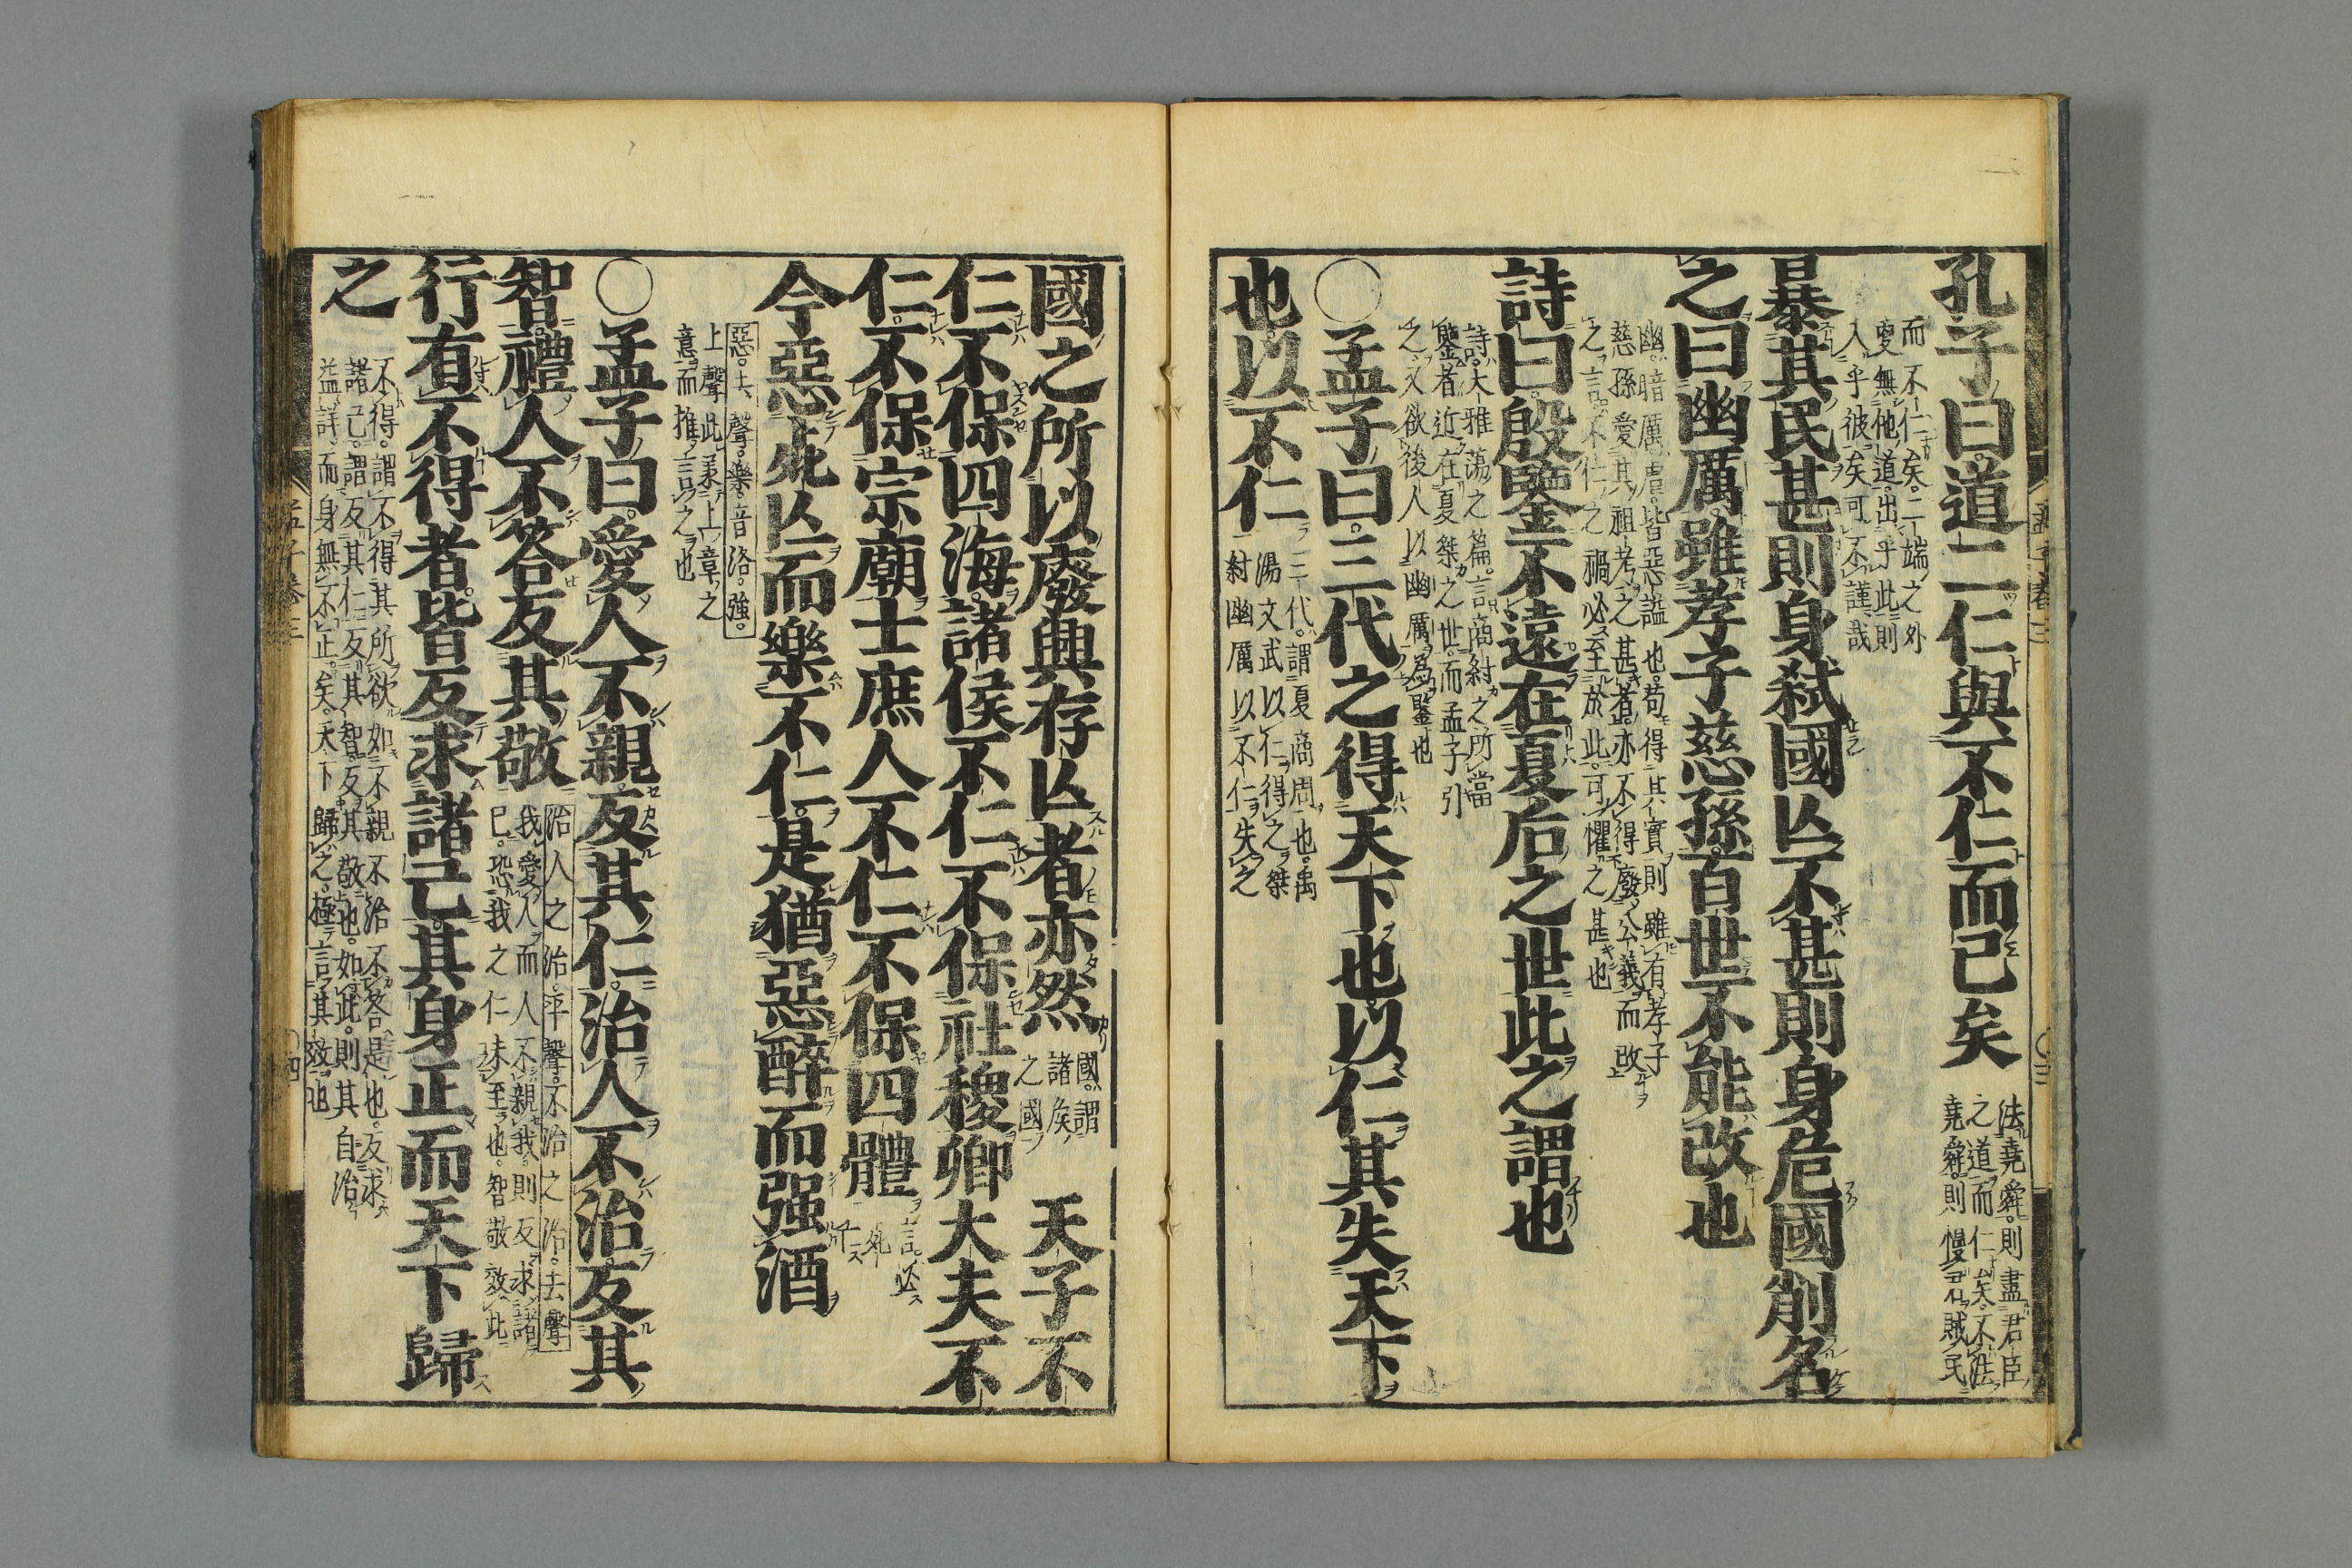 孔子曰道二仁與不仁而已矣
法堯舜則盡君臣
之道而仁矣不法
堯舜則慢君賊民
而不仁矣二端之外
更無他道出乎此則
入乎彼矣可不謹哉
暴其民甚則身弒國亾不甚則身危國削名
之曰幽厲雖孝子慈孫百世不能改也
幽暗厲虐皆惡謚也苟得其實則雖有孝子
慈孫愛其祖考之甚者亦不得廢公義而改
之言不仁之禍必至於此可懼之甚也
詩曰殷鑒不遠在夏后之世此之謂也
詩大雅蕩之篇言商紂之所當
鑒者近在夏桀之世而孟子引
之又欲後人以幽厲為鑒也
○孟子曰三代之得天下也以仁其失天下
也以不仁
三代謂夏商周也禹
湯文武以仁得之桀
紂幽厲以不仁失之
孟子卷三
○三
國之所以廢興存亾者亦然
國謂
諸侯
之國
天子不
仁不保四海諸侯不仁不保社稷卿大夫不
仁不保宗廟士庶人不仁不保四體
言必
死
今惡死亾而樂不仁是猶惡醉而强酒
惡去聲樂音洛强
上聲此承上章之
意而推言之也
○孟子曰愛人不親反其仁治人不治反其
智禮人不答反其敬
治人之治平聲不治之治去聲
我愛人而人不親我則反求諸
已恐我之仁未至也智敬效此
行有不得者皆反求諸已其身正而天下歸
之
不得謂不得其所欲如不親不治不答是也反求
諸已謂反其仁反其智反其敬也如此則其自治
益詳而身無不正矣天下歸之極言其效也
孟子卷三
○四